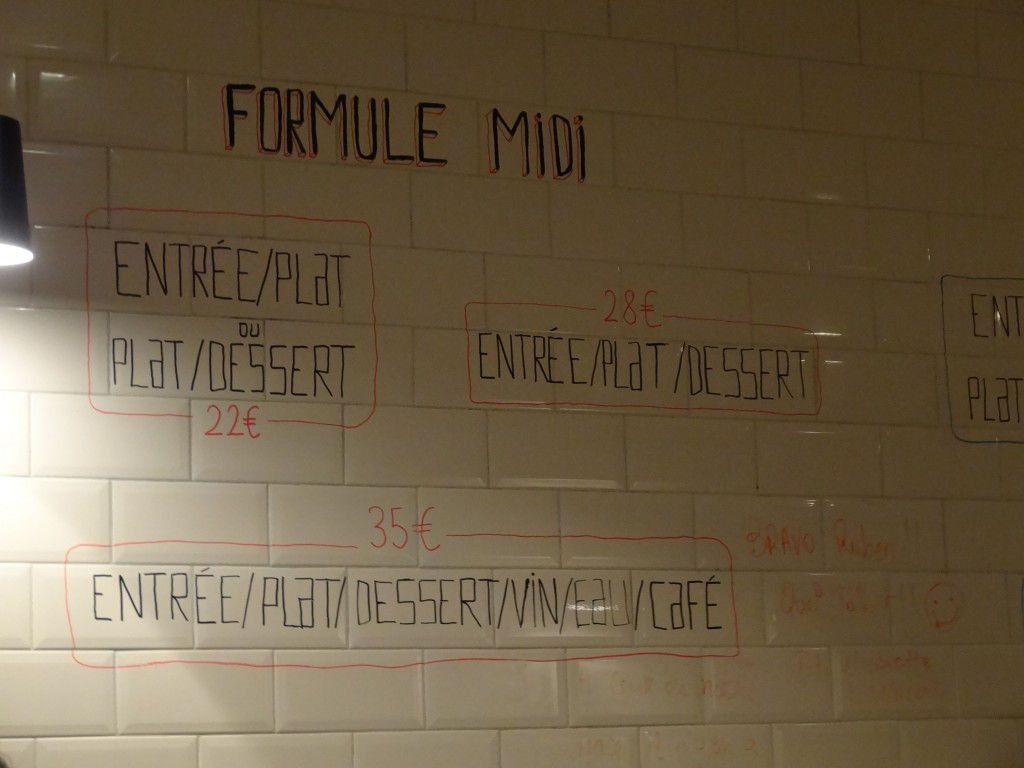 FORMULE MiDi
ENTRÉE/PLaT
OU
PLaT/DESSERT
22€
28€
ENTRÉE/PLaT/DESSERT
ENT
PLaT
35€
ENTRÉE/PLaT/DESSERT/VIN/EaU/CaFÉ
BRAVO